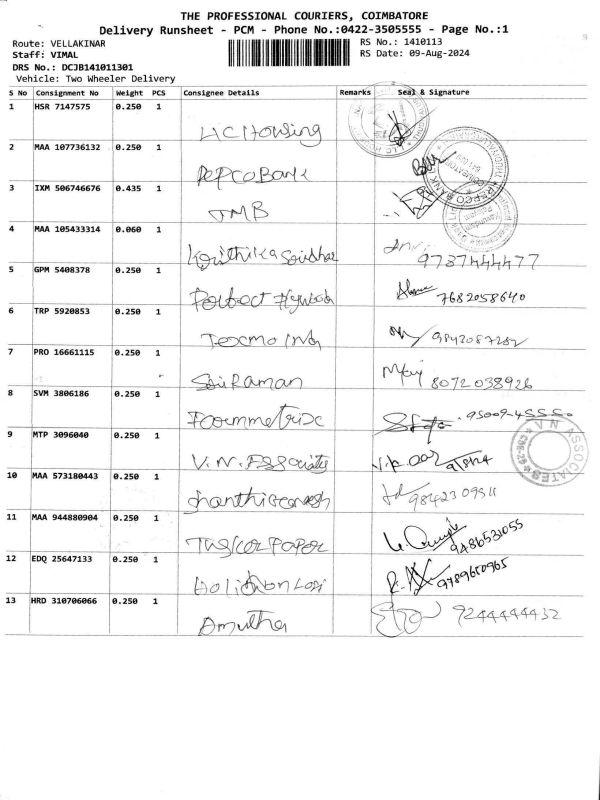 THE PROFESSIONAL COURIERS, COIMBATORE
Delivery Runsheet - PCM - Phone No.:0422-3505555 - Page No.:1
Route: VELLAKINAR
RS No.: 1410113
Staff: VIMAL
RS Date: 09-Aug-2024
DRS No.: DCJB141011301
Vehicle: Two Wheeler Delivery
S No Consignment No Weight PCS Consignee Details Remarks Seal & Signature
1 HSR 7147575 0.250 1
LIC Housing
2 MAA 107736132 0.250 1
REPCO Bank
3 IXM 506746676 0.435 1
TMB
4 MAA 105433314 0.060 1
9787444477
5 GPM 5408378 0.250 1
Perfect
7682058640
6 TRP 5920853 0.250 1
Texmo Ind
7 PRO 16661115 0.250 1
Sai Raman
8072038926
8 SVM 3806186 0.250 1
9 MTP 3096040 0.250 1
V.N. Associates
V N ASSOCIATES
10 MAA 573180443 0.250 1
11 MAA 944880904 0.250 1
Paper
9486531055
12 EDQ 25647133 0.250 1
9789650965
13 HRD 310706066 0.250 1
Amutha
9244444432